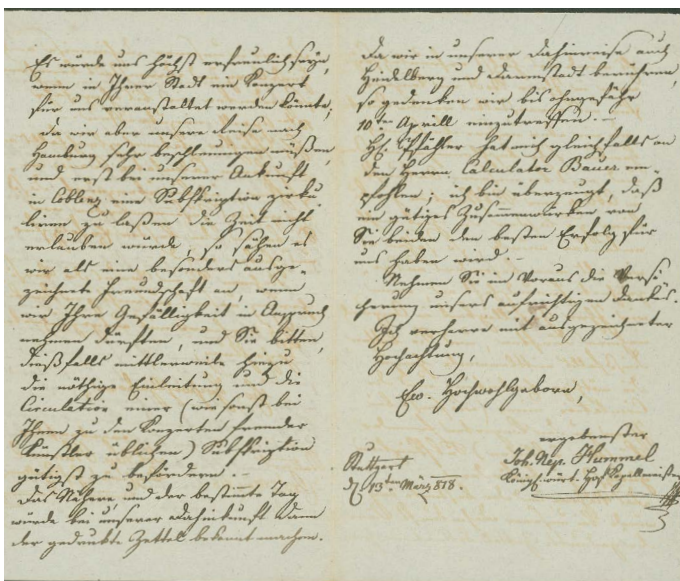 Es würde uns höchst erfreulich seyn,
wenn in Ihrer Stadt ein Konzert
für uns veranstaltet werden könnte,
da wir aber unsere Reise nach
Hamburg sehr beschleunigen müßen,
und erst bei unserer Ankunft
in Coblenz eine Subskription zirku-
lieren zu laßen die Zeit nicht
erlauben würde, so sähen es
wir als eine besonders ausge-
zeichnete Freundschaft an, wenn
wir Ihre Gefälligkeit in Anspruch
nehmen dürften, und Sie bitten,
dießfalls mittlerweile hinzu
die nöthige Einleitung und die
Circulation einer (wie sonst bei
Ihnen zu den Konzerten fremder
Künstler üblichen) Subskription
gütigst zu befördern. –
Das Nähere und der bestimmte Tag
würde bei unserer Dahinkunft dann
der gedruckte Zettel bekannt machen.
Da wir in unserer Dahinreise auch
Heidelberg und Darmstadt berühren,
so gedenken wir bis ohngefähr
10ten Aprill einzutreffen. –
H. hat mich gleichfalls an
den Herrn Calculator Bauer em-
pfohlen; ich bin überzeugt, daß
ein gütiges Zusammenwirken von
Sie beiden den besten Erfolg für
uns haben wird. –
Nehmen Sie in Voraus die Versi-
cherung unsers aufrichtigen Dankes.
Ich verharre mit ausgezeichneter
Hochachtung,
Ew. Hochwohlgeborn,
ergebenster
Joh. Nep. Hummel
Königl. wirt. Hof Kapellmeister
Stuttgart
d 13ten März 818.